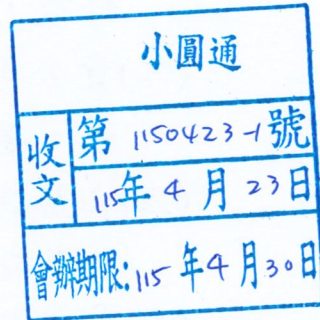 小圓通
收文
第1150423-1號
115年4月23日
會辦期限:115年4月30日